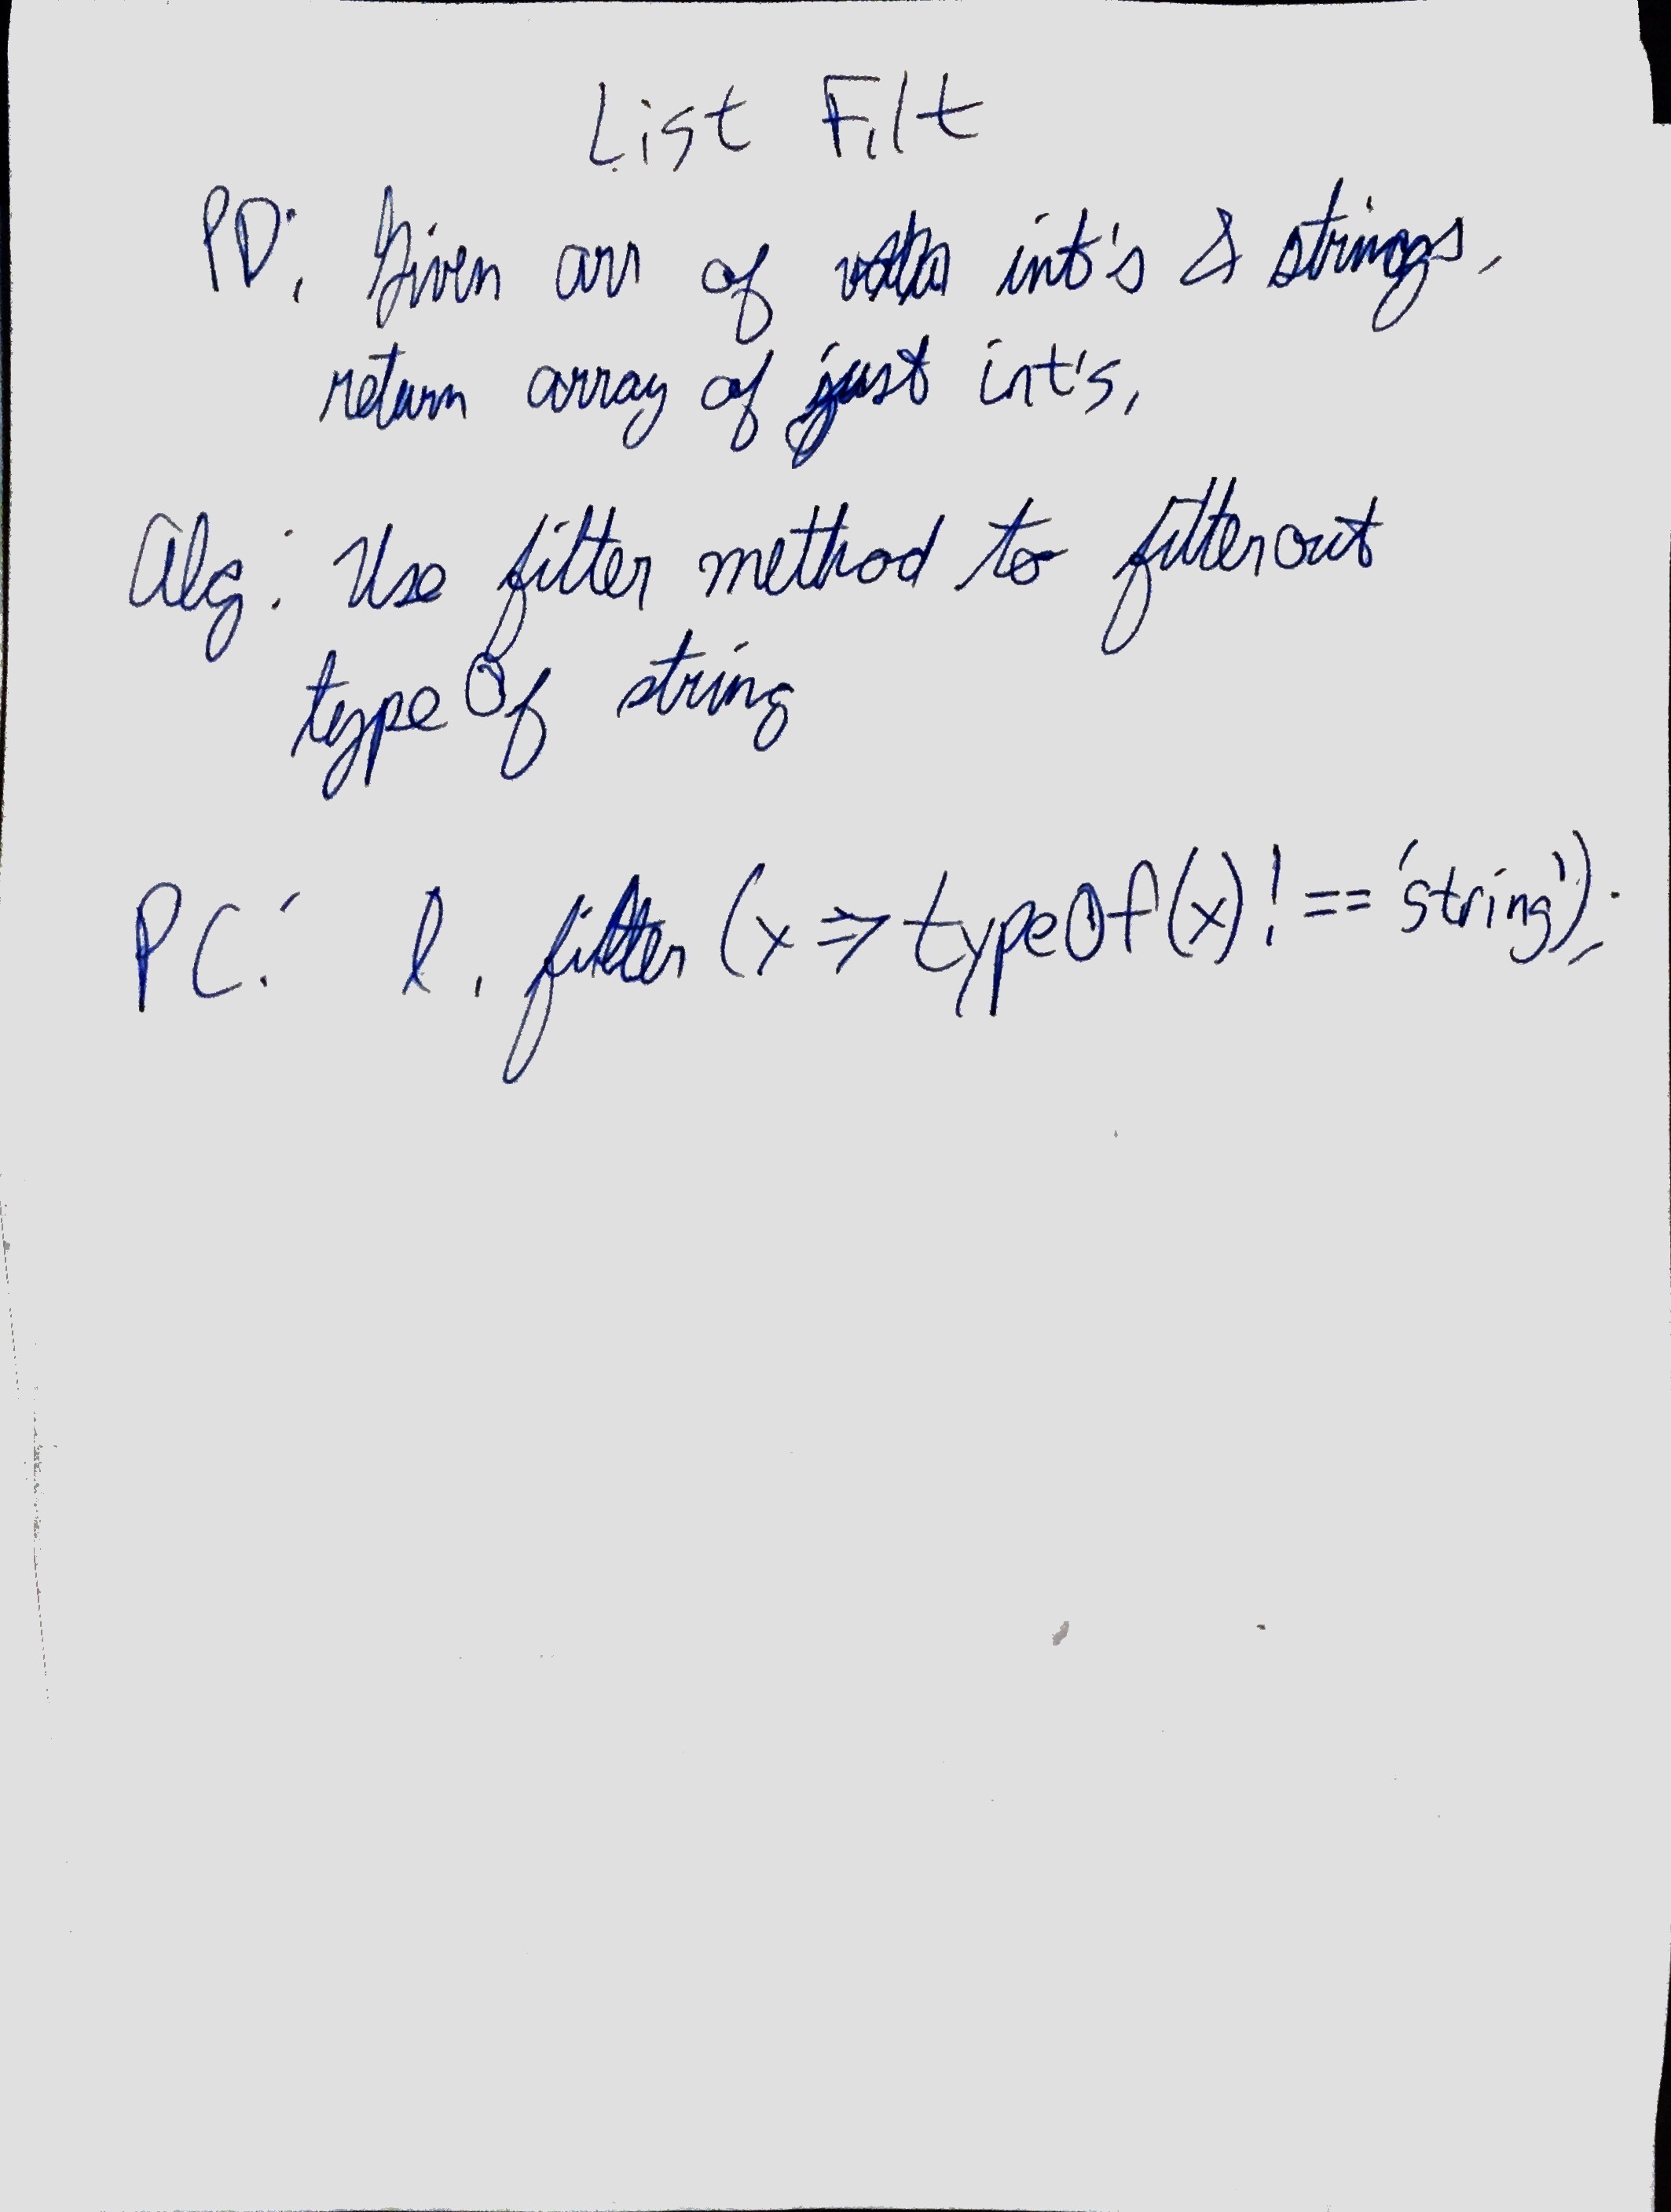 List Filt
PD: Given arr of int's & strings,
return array of just int's,
Alg: Use filter method to filter out
typeOf string
PC: l.filter(x => typeOf(x) !== 'string');